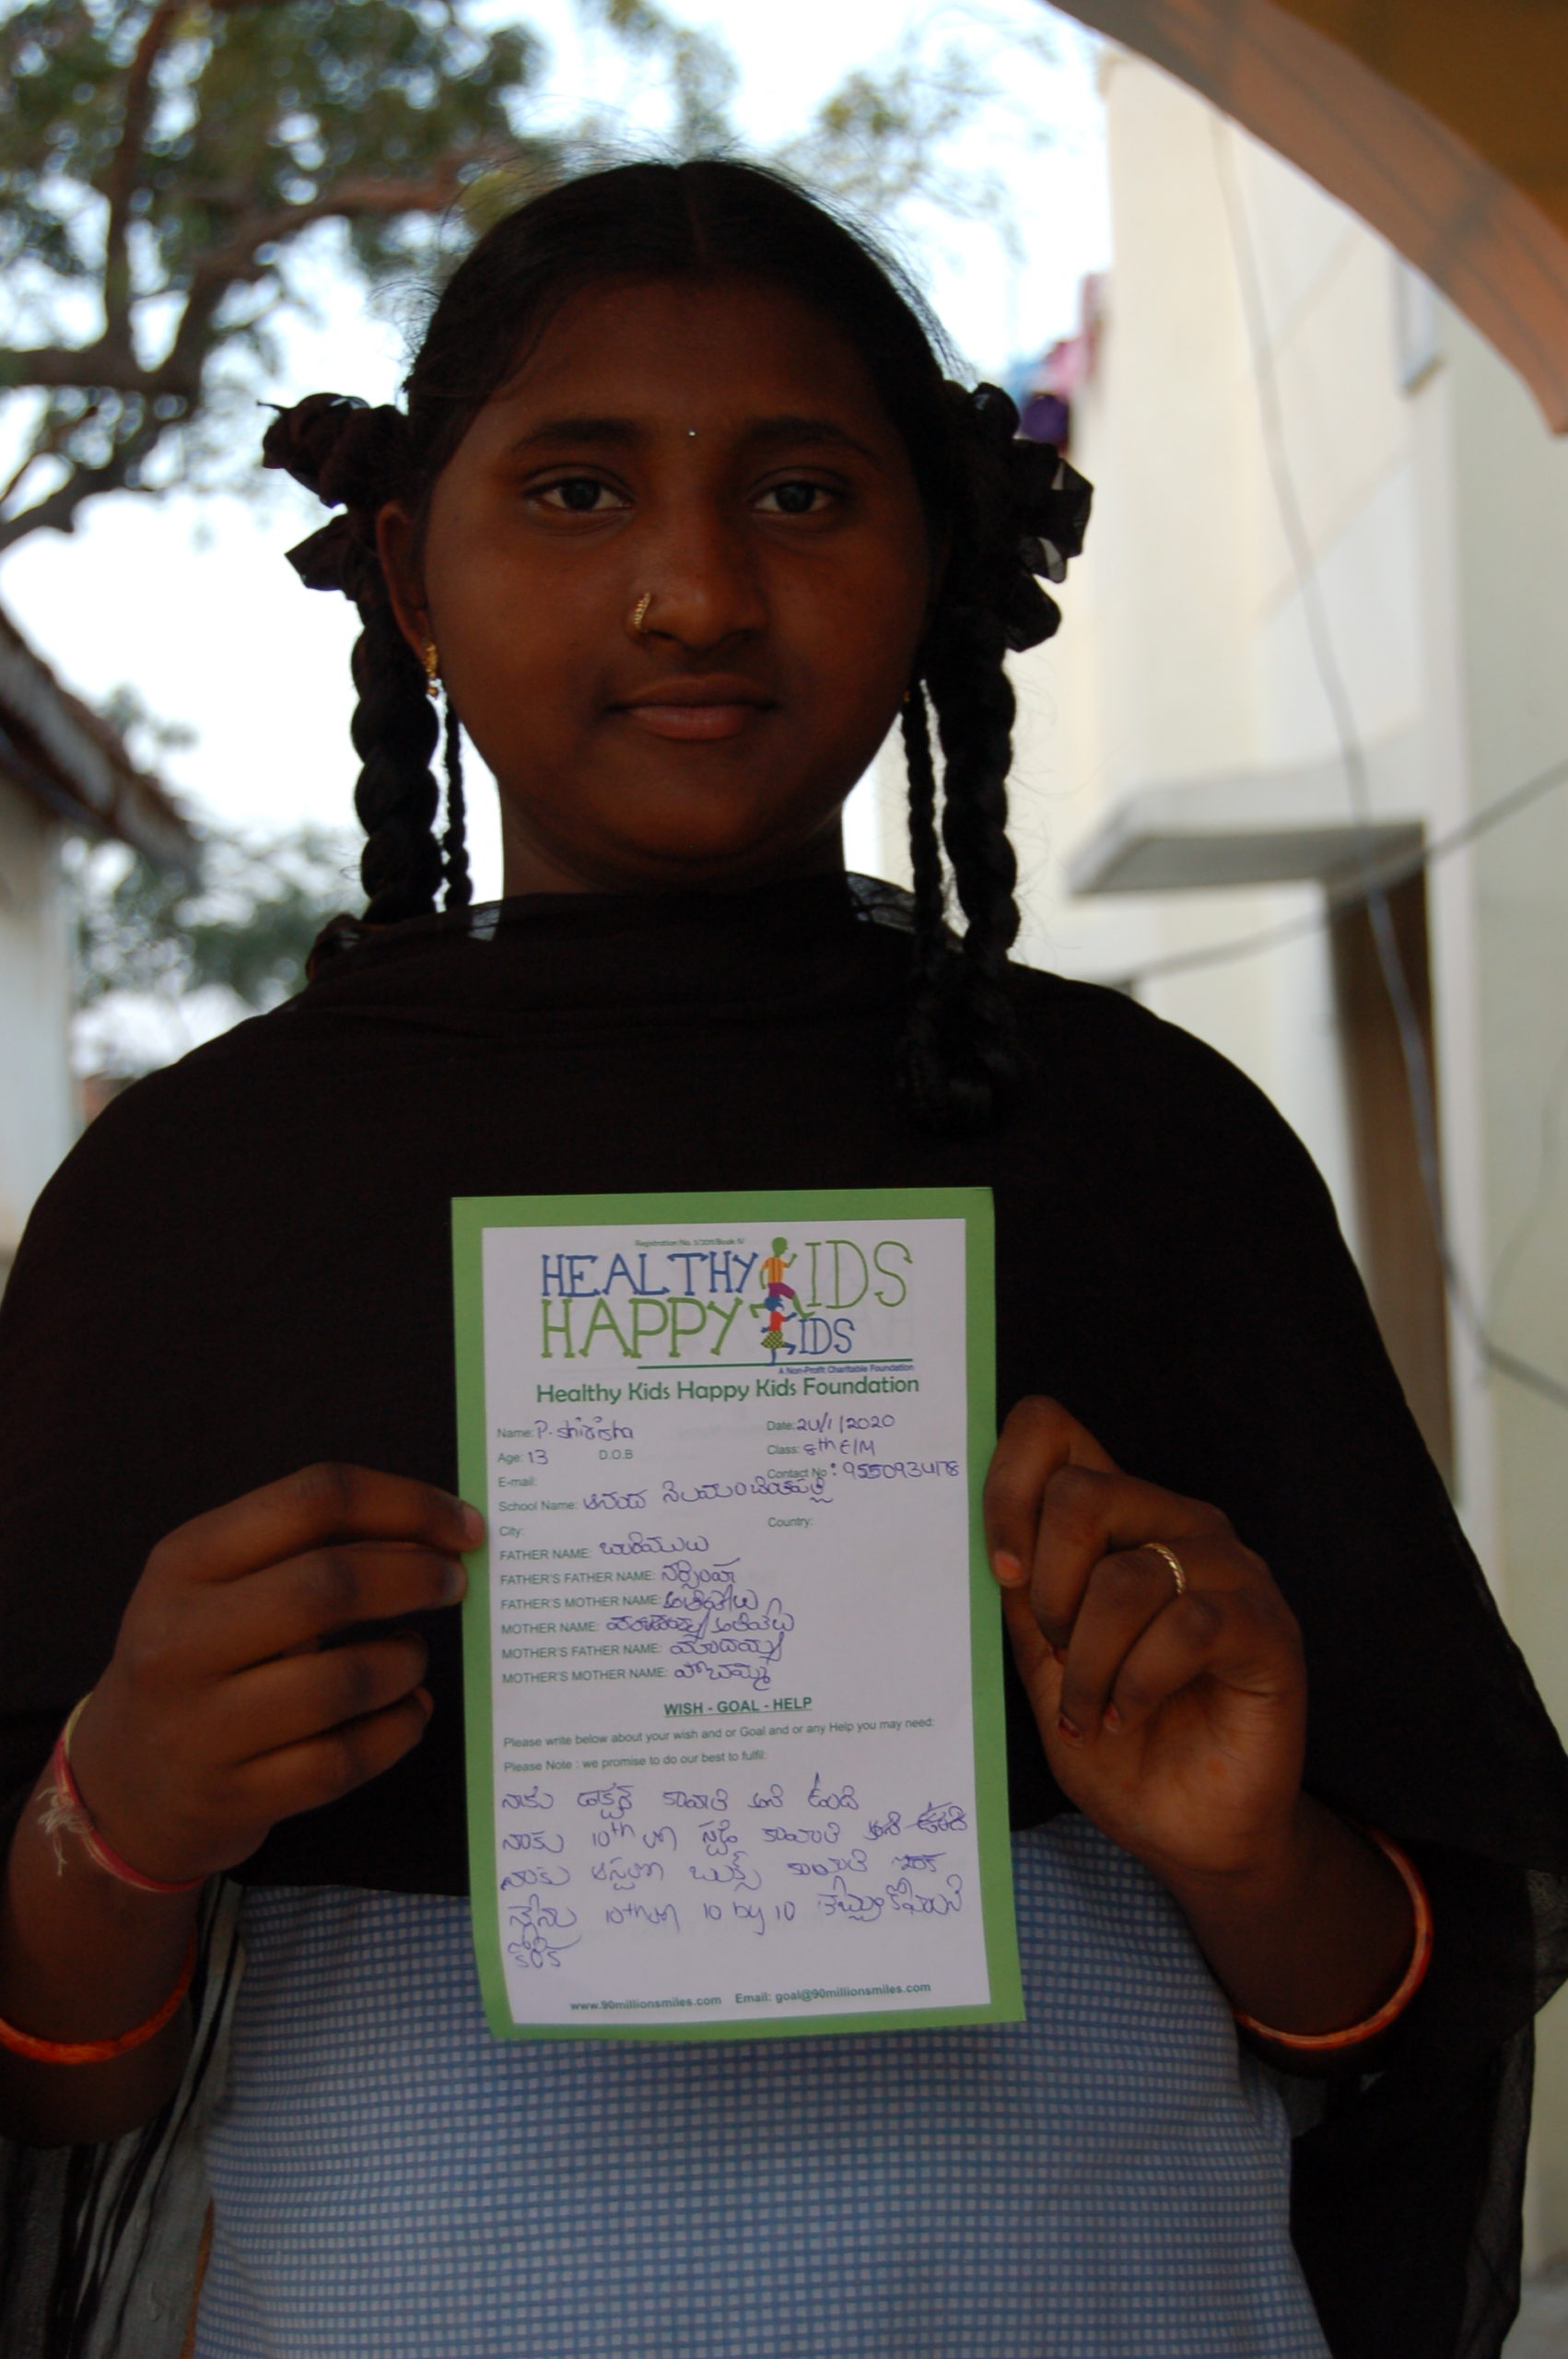 Registration No. 1/2011/Book IV
HEALTHY KIDS
HAPPY KIDS
A Non-Profit Charitable Foundation
Healthy Kids Happy Kids Foundation
Name: P. Shirisha Date: 24/1/2020
Age: 13 D.O.B Class: 8th E/M
E-mail: Contact No : 9550934178
School Name: ఆనంద నిలయం
City: Country:
FATHER NAME:
FATHER'S FATHER NAME: నర్సింహ
FATHER'S MOTHER NAME:
MOTHER NAME:
MOTHER'S FATHER NAME: యాదయ్య
MOTHER'S MOTHER NAME: పోచమ్మ
WISH - GOAL - HELP
Please write below about your wish and or Goal and or any Help you may need:
Please Note : we promise to do our best to fulfil:
నాకు డాక్టర్ కావాలి అని ఉంది
నాకు 10th లో స్టడి కావాలి అని ఉంది
నాకు బుక్స్ కావాలి
నేను 10th లో 10 by 10
కోరిక
www.90millionsmiles.com Email: goal@90millionsmiles.com